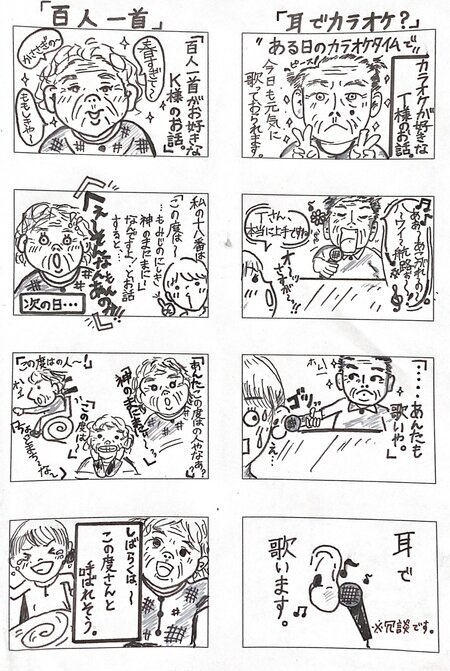 「耳でカラオケ？」
"ある日のカラオケタイムで"
カラオケが好きな
T様のお話。
ピース!
今日も元気に
歌っておられます。
ああ〜あこがれの〜
Tさん、
本当に上手ですね
「……あんたも
歌いや。」
ホレ
ゴツッ
え…
耳で
歌います。
※冗談です。
「百人一首」
「百人一首がお好きな
K様のお話。」
春すぎて〜
かささぎの〜
ももしきや〜
私の十八番は
「この度は〜
…もみじのにしき
神のまにまに」
なんですよ、とお話
すると…
次の日…
「あんた、この度の人やなあ?
神のまにまに
この度は〜
「この度はの人〜!」
しばらくは〜
この度さんと
呼ばれそう。